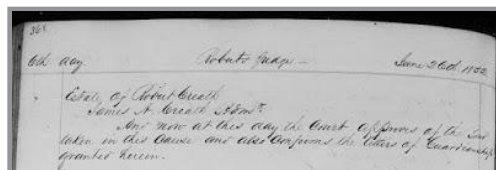 368
6th day Roberts Judge — June 26th 1822
Estate of Robert Creath
James A. Creath Admr
And now at this day the Court approves of the
taken in this Cause and also confirms the letters of Guardianship
granted herein.